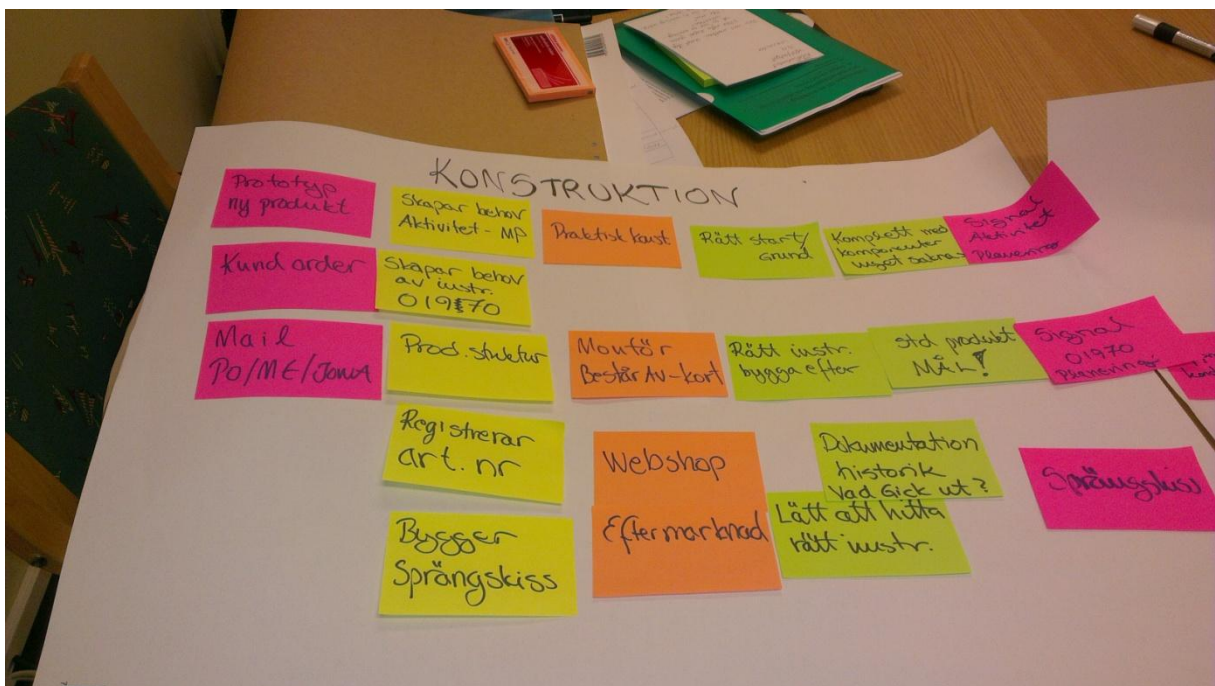 KONSTRUKTION
Prototyp
ny produkt
Skapar behov
Aktivitet - MP
Praktisk konst
Rätt start/
Grund
Komplett med
komponenter
Signal
Aktivitet
Planering
Kund order
Skapar behov
av instr.
01970
Mail
Po/ME/JonA
Prod. struktur
Montör
Består AV-kort
Rätt instr.
bygga efter
std. produkt
MÅL!
Signal
01970
Planering
Registrerar
art. nr
Webshop
Dokumentation
historik
Vad Gick ut?
Sprängskiss
Bygger
Sprängskiss
Eftermarknad
Lätt att hitta
rätt instr.